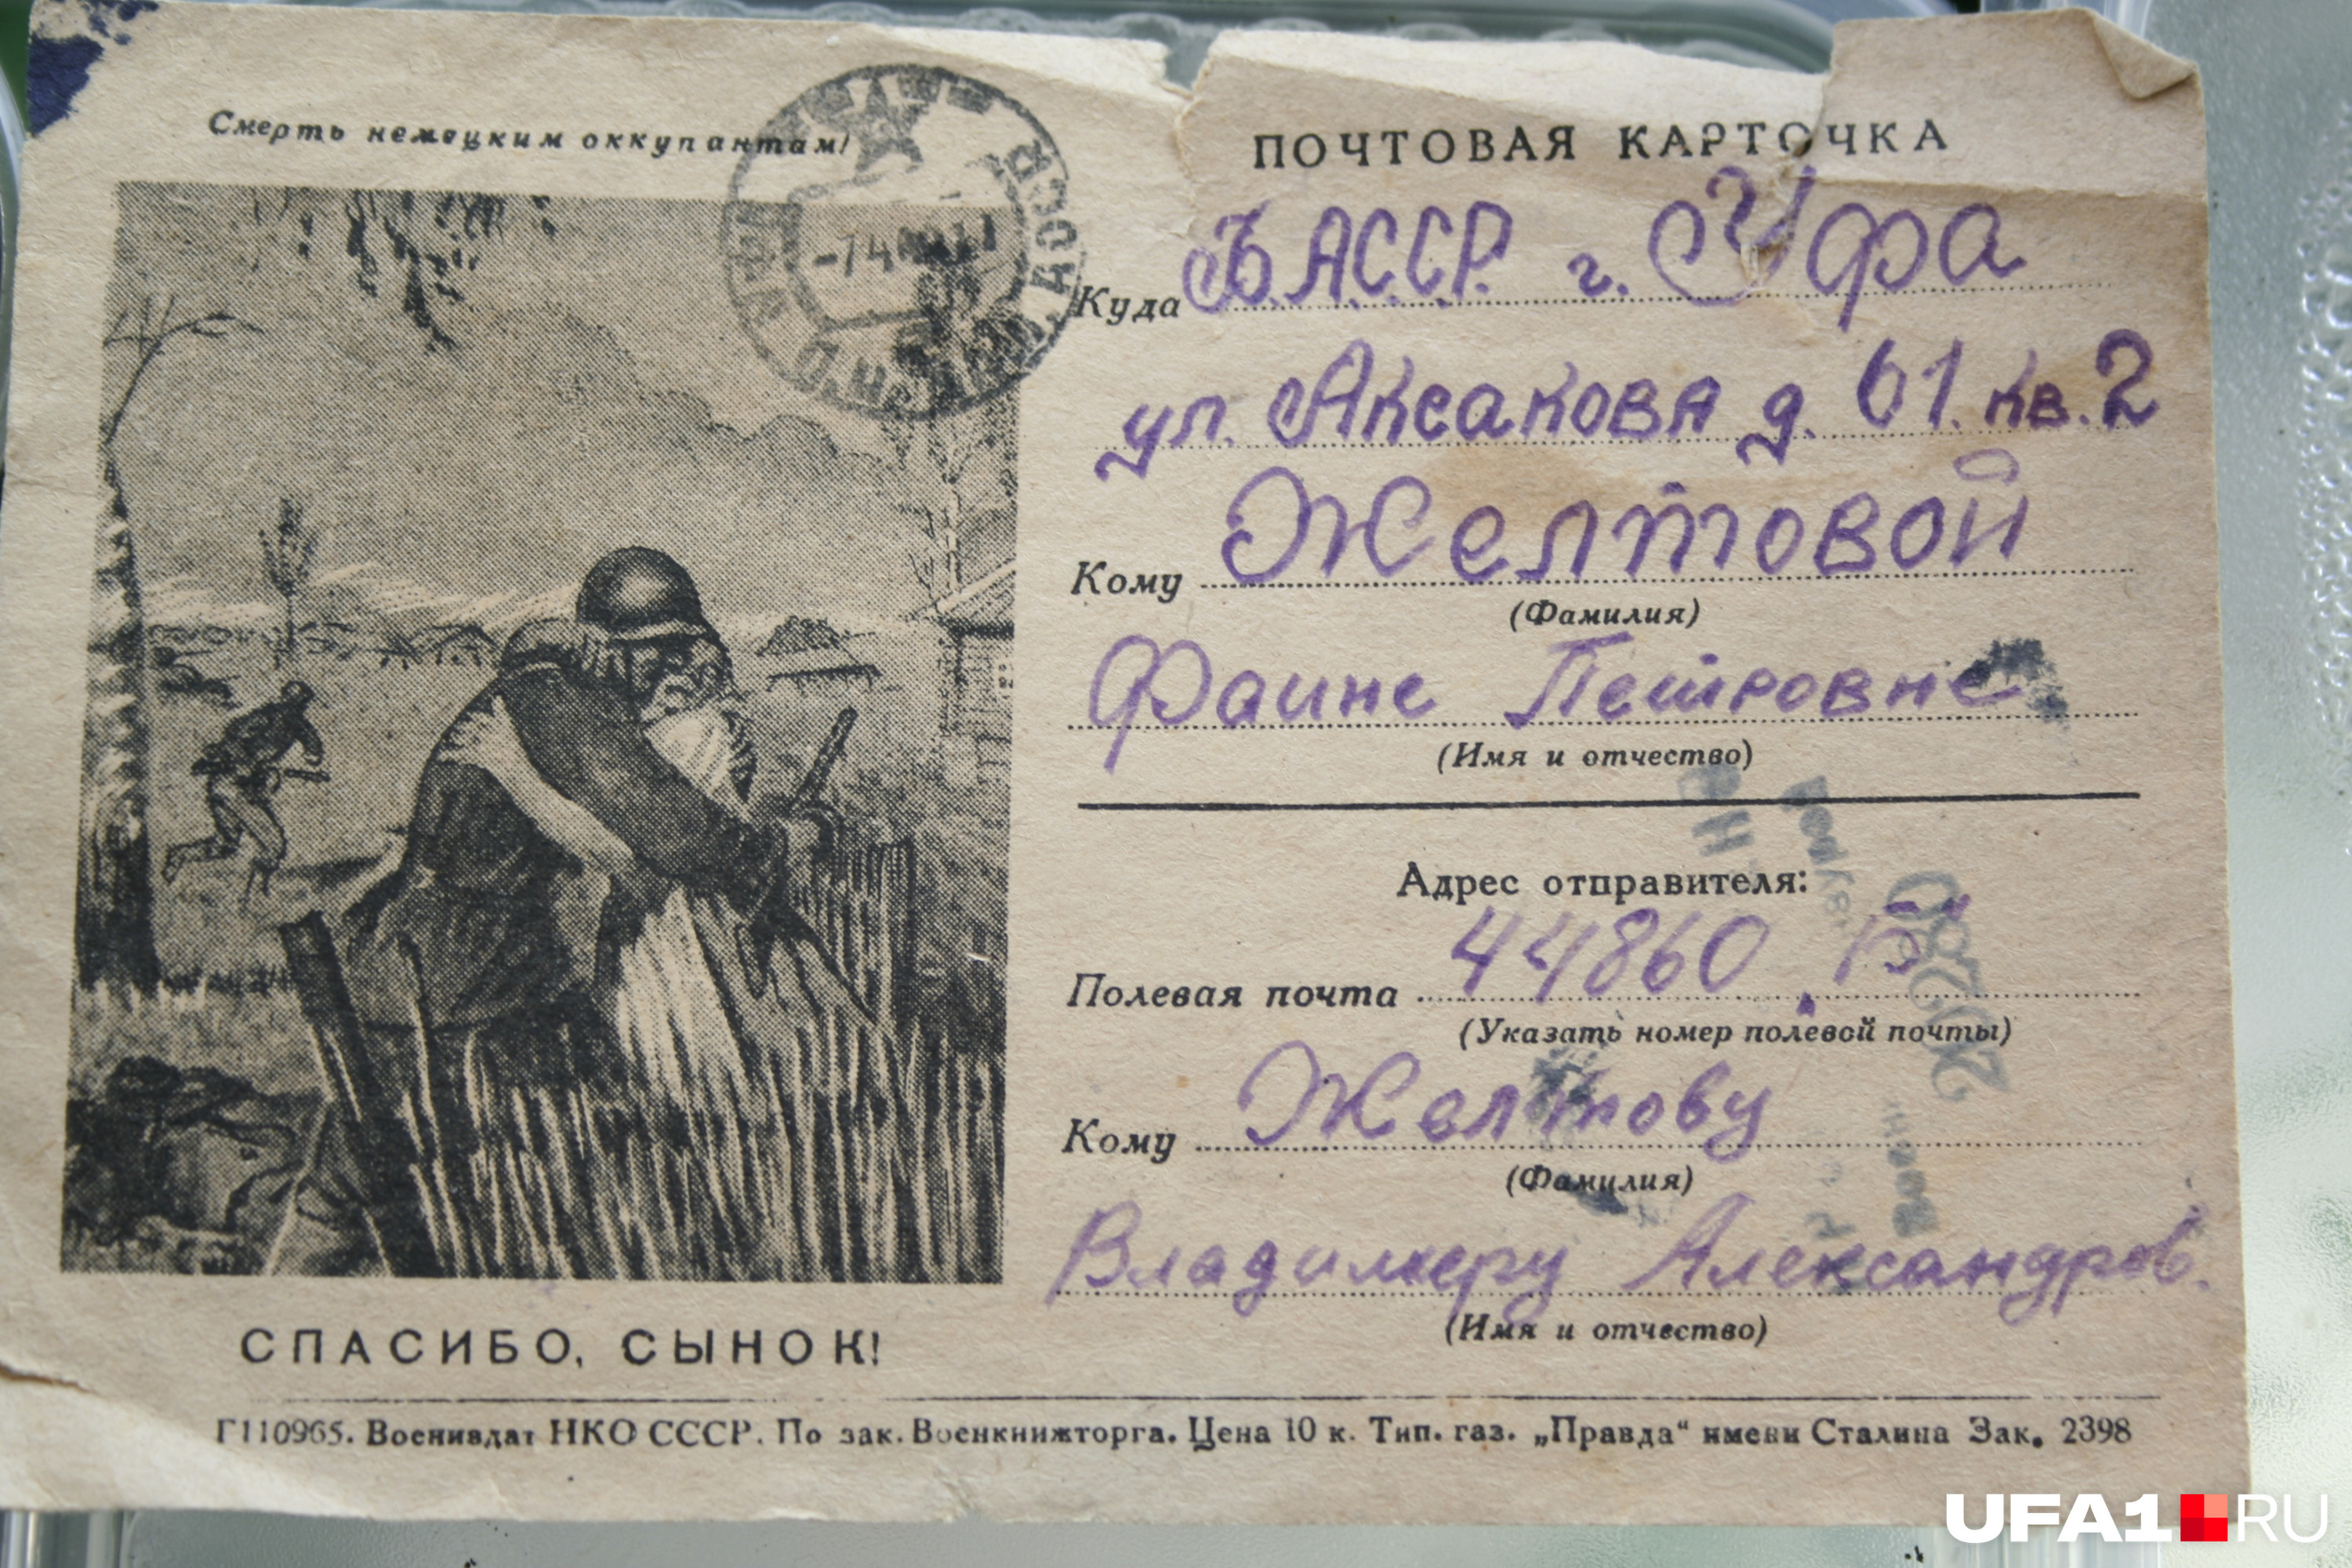 Смерть немецким оккупантам!
ПОЧТОВАЯ КАРТОЧКА
Куда Б.А.С.С.Р. г. Уфа
ул. Аксакова д. 61. кв. 2
Кому Желтовой
(Фамилия)
Фаине Петровне
(Имя и отчество)
Адрес отправителя:
Полевая почта 44860 Б
(Указать номер полевой почты)
Кому Желтову
(Фамилия)
Владимеру Александров.
(Имя и отчество)
СПАСИБО, СЫНОК!
Г110965. Воениздат НКО СССР. По зак. Военкнижторга. Цена 10 к. Тип. газ. „Правда“ имени Сталина Зак. 2398
UFA1.RU